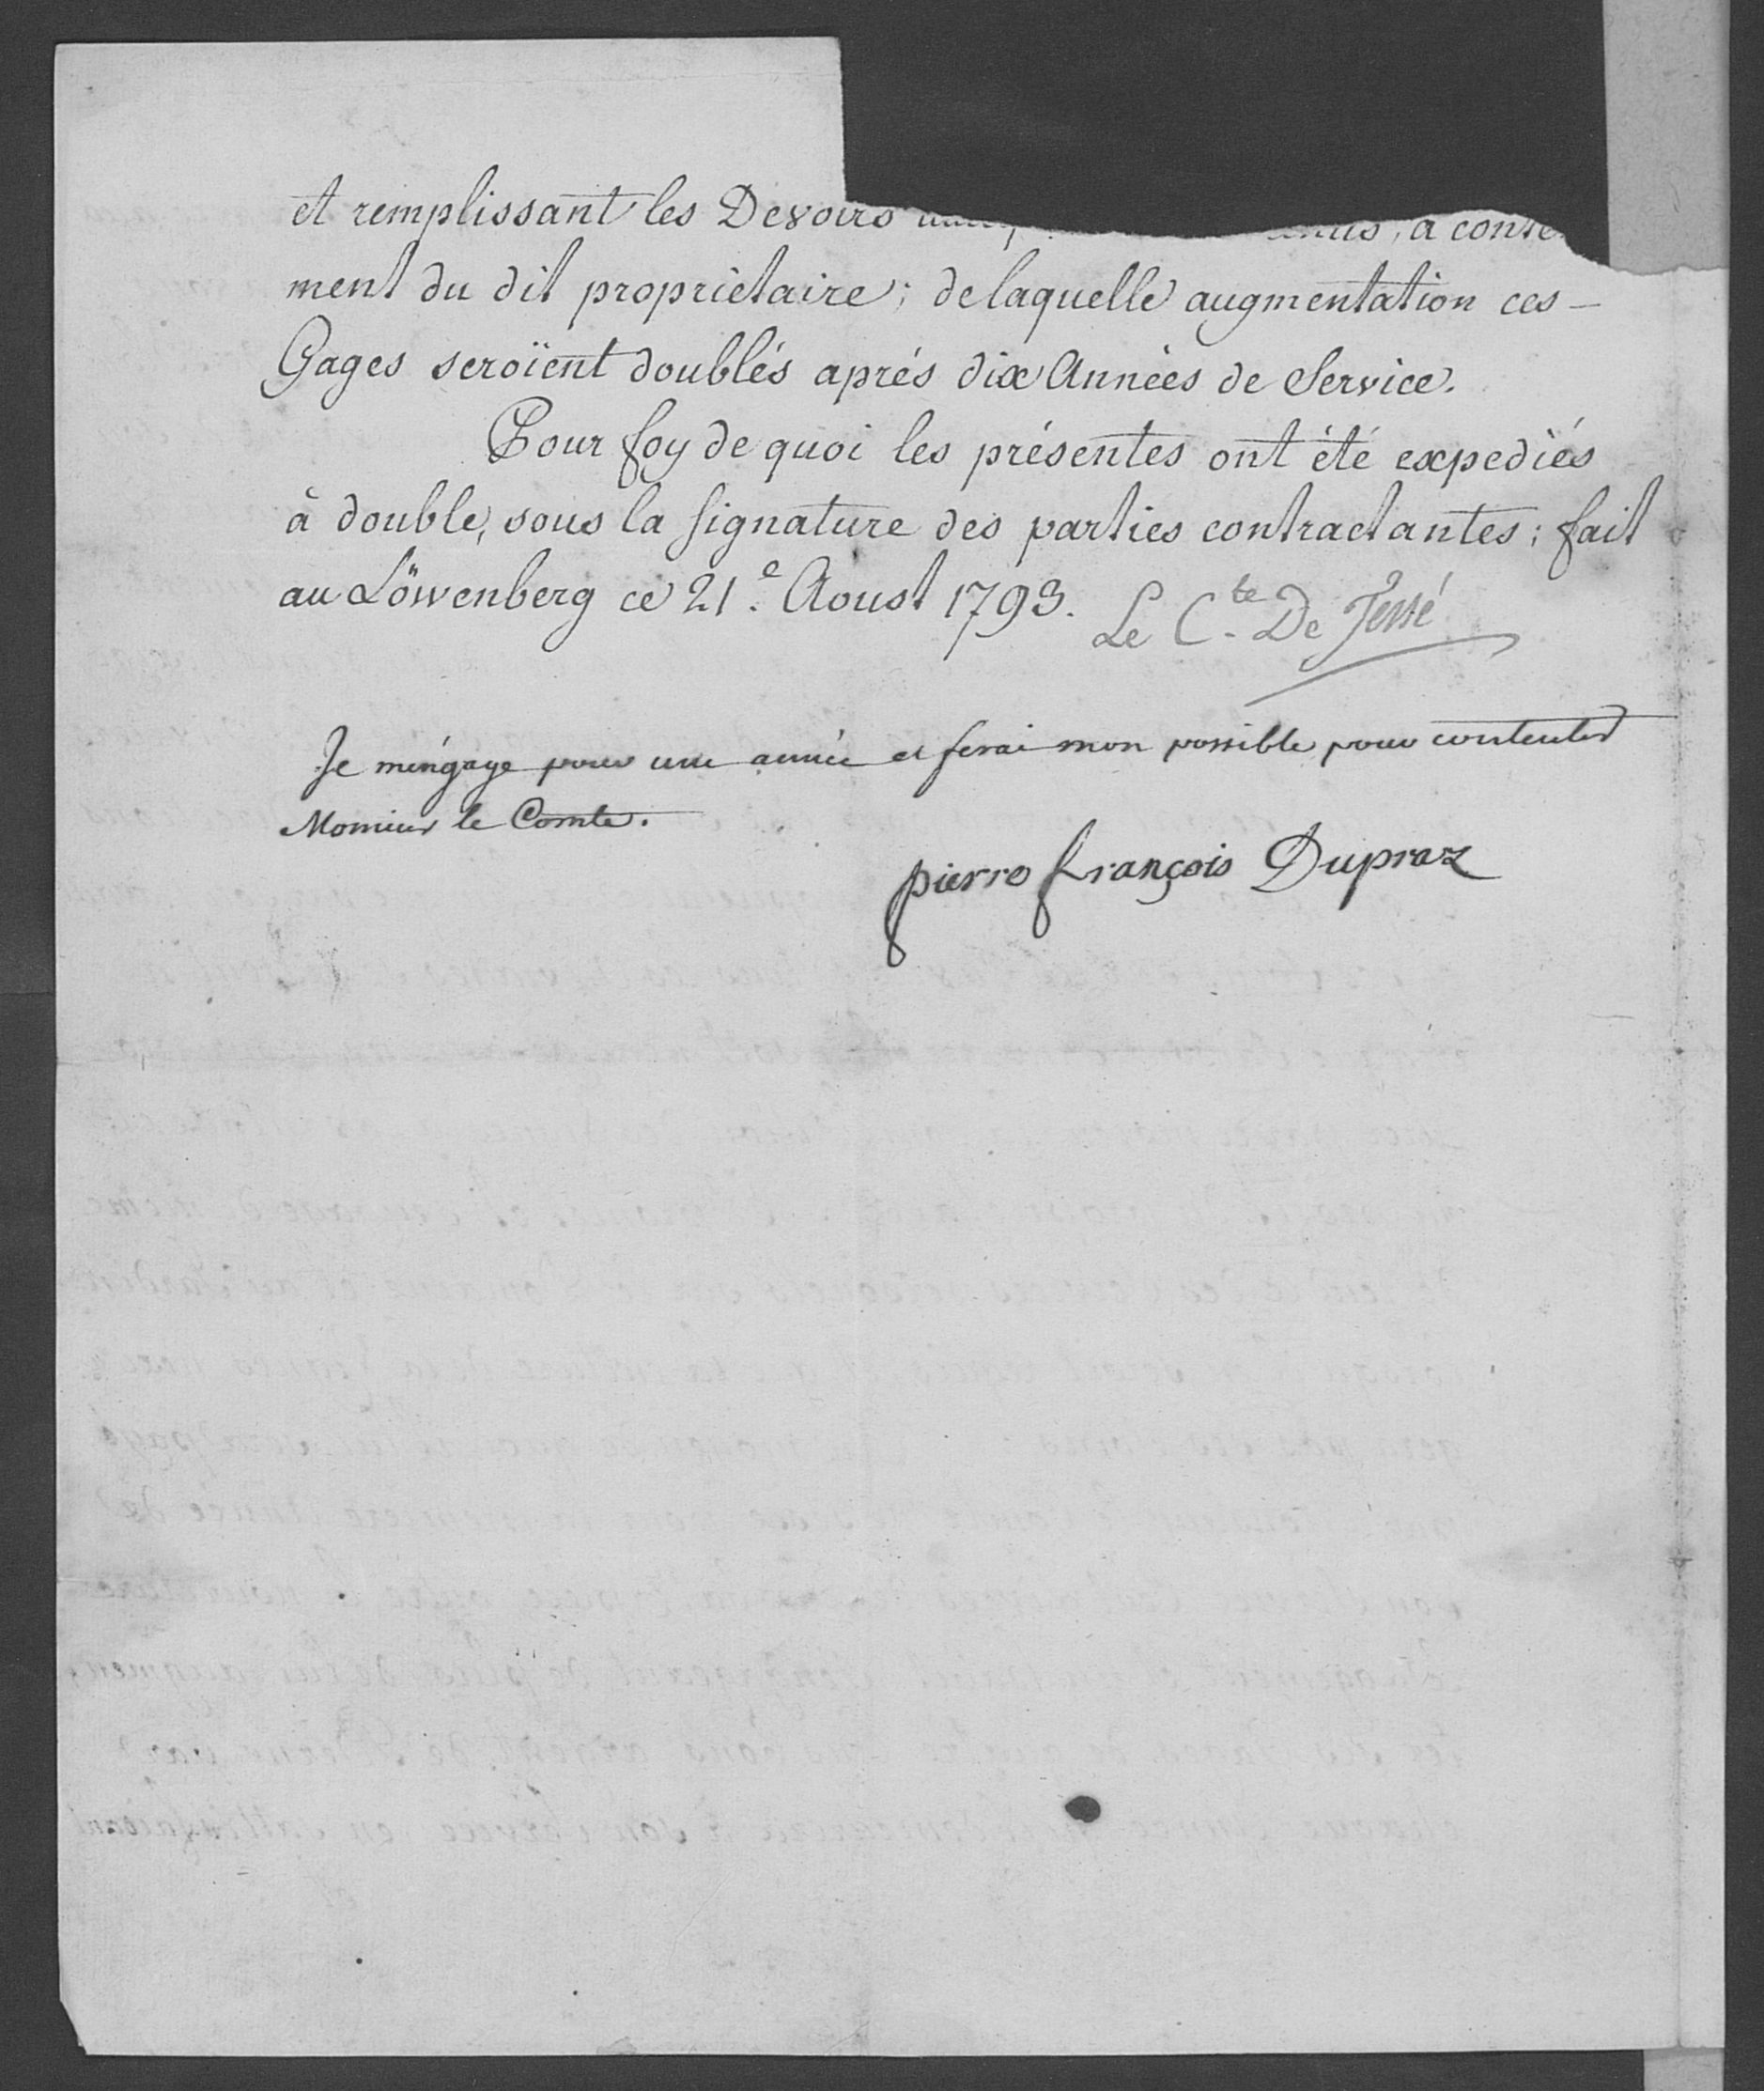 et remplissant les Devoirs à conte
ment du dit propriètaire; de laquelle augmentation ces —
Gages seroïent doublés aprés dix Années de Service.
Pour foy de quoi les présentes ont été expediés
à double, sous la signature des parties contractantes; fait
au Löwenberg ce 21.e Aoust 1793. Le C.te De Jessé
Je méngage pour une année et ferai mon possible pour contenter
Monsieur le Comte.
pierre françois Dupraz